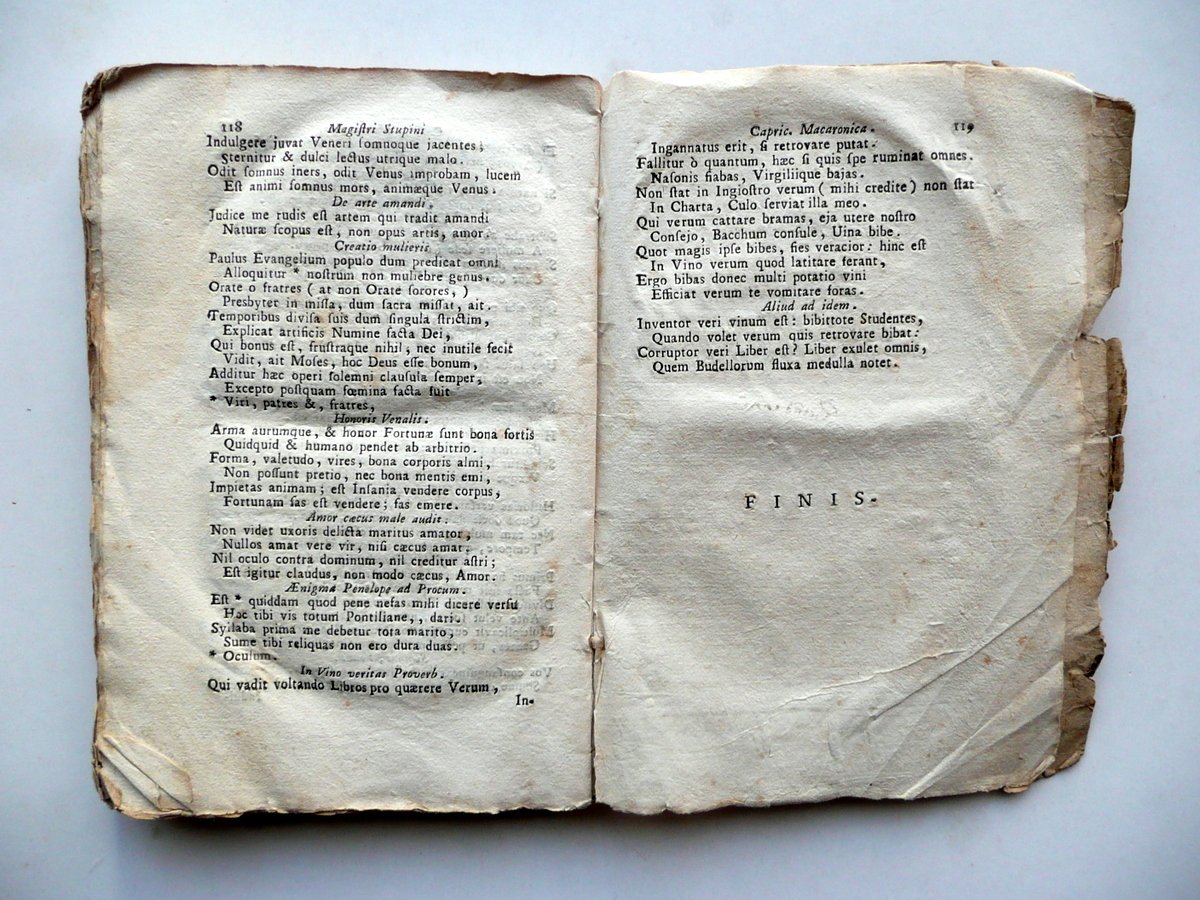 118 Magiſtri Stupini
Indulgere juvat Veneri ſomnoque jacentes;
Sternitur & dulci lectus utrique malo.
Odit ſomnus iners, odit Venus improbam, lucem
Eſt animi ſomnus mors, animæque Venus.
De arte amandi,
Judice me rudis eſt artem qui tradit amandi
Naturæ ſcopus eſt, non opus artis, amor.
Creatio mulieris
Paulus Evangelium populo dum predicat omni
Alloquitur * noſtrum non muliebre genus.
Orate o fratres ( at non Orate ſorores, )
Presbyter in miſſa, dum ſacra miſſat, ait.
Temporibus diviſa ſuis dum ſingula ſtrictim,
Explicat artificis Numine facta Dei,
Qui bonus eſt, fruſtraque nihil, nec inutile fecit
Vidit, ait Moſes, hoc Deus eſſe bonum,
Additur hæc operi ſolemni clauſula ſemper,
Excepto poſtquam fœmina facta fuit
* Viri, patres &, fratres,
Honoris Venalis.
Arma aurumque, & honor Fortunæ ſunt bona fortis
Quidquid & humano pendet ab arbitrio.
Forma, valetudo, vires, bona corporis almi,
Non poſſunt pretio, nec bona mentis emi,
Impietas animam; eſt Inſania vendere corpus,
Fortunam fas eſt vendere; fas emere.
Amor cæcus male audit.
Non videt uxoris delicta maritus amator,
Nullos amat vere vir, niſi cæcus amat.
Nil oculo contra dominum, nil creditur aſtri;
Eſt igitur claudus, non modo cæcus, Amor.
Ænigma Penelope ad Procum.
Eſt * quiddam quod pene nefas mihi dicere verſu
Hoc tibi vis totum Pontiliane, , dari.
Syllaba prima me debetur tota marito,
Sume tibi reliquas non ero dura duas.
* Oculum.
In Vino veritas Proverb.
Qui vadit voltando Libros pro quærere Verum,
In-
Capric. Macaronica. 119
Ingannatus erit, ſi retrovare putat.
Fallitur ò quantum, hæc ſi quis ſpe ruminat omnes.
Naſonis fiabas, Virgiliique bajas.
Non ſtat in Ingioſtro verum ( mihi credite ) non ſtat
In Charta, Culo ſerviat illa meo.
Qui verum cattare bramas, eja utere noſtro
Conſejo, Bacchum conſule, Uina bibe.
Quot magis ipſe bibes, fies veracior: hinc eſt
In Vino verum quod latitare ferant,
Ergo bibas donec multi potatio vini
Efficiat verum te vomitare foras.
Aliud ad idem.
Inventor veri vinum eſt: bibittote Studentes,
Quando volet verum quis retrovare bibat:
Corruptor veri Liber eſt? Liber exulet omnis,
Quem Budellorum fluxa medulla notet.
FINIS.